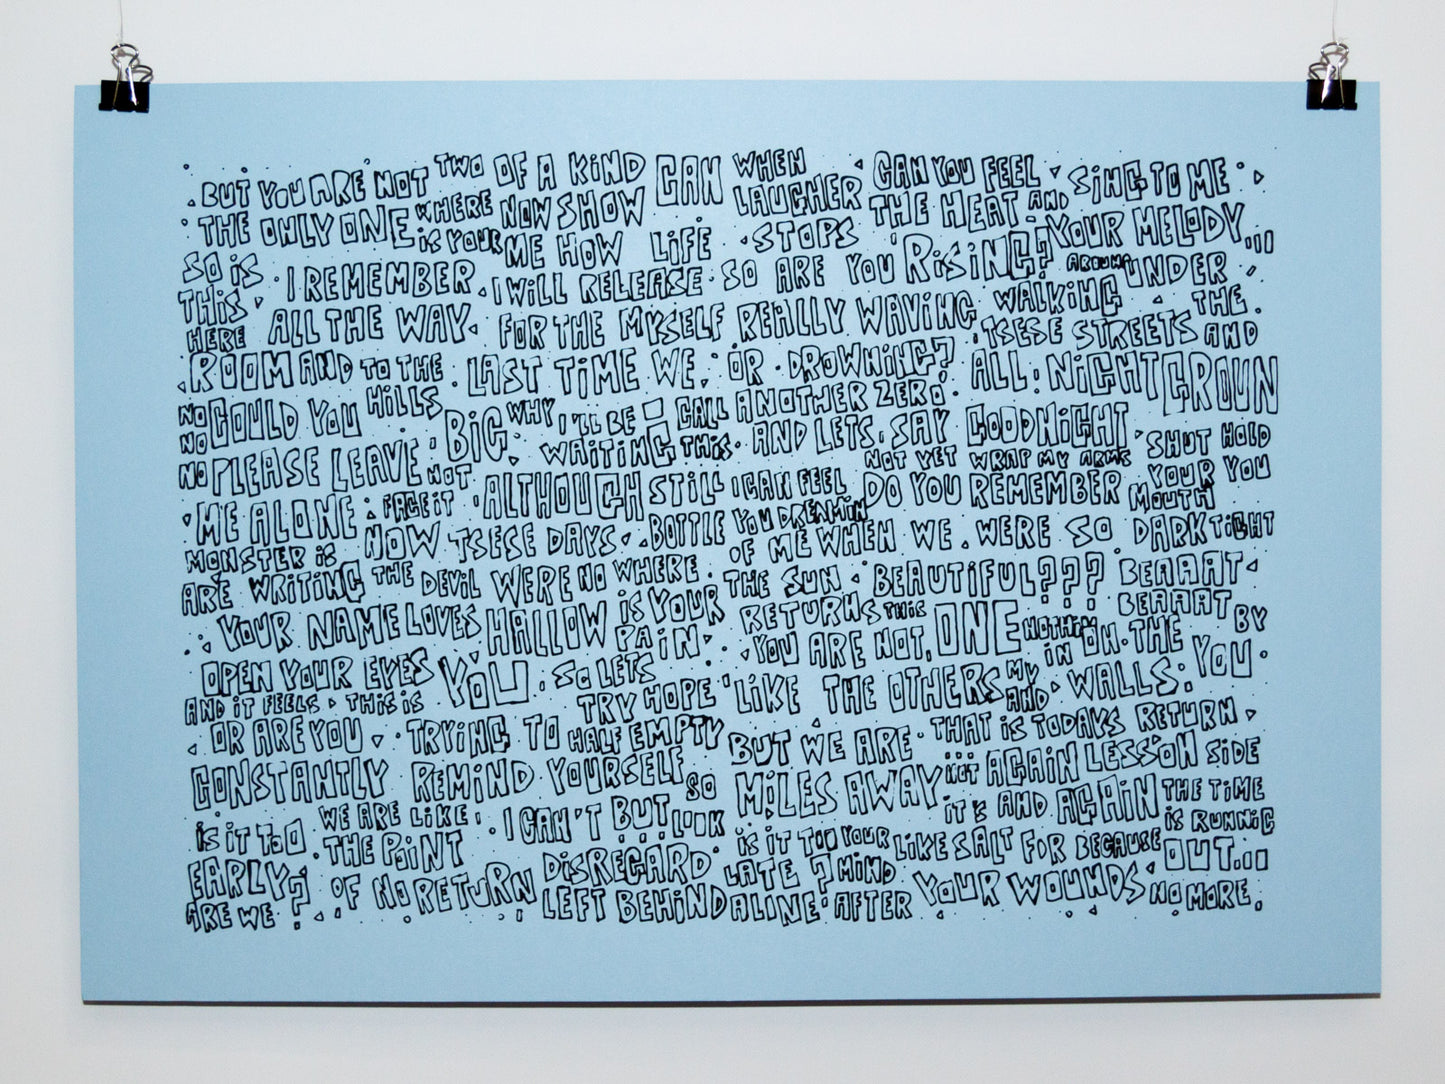 BUT YOU ARE NOT TWO OF A KIND CAN WHEN CAN YOU FEEL SING TO ME
THE ONLY ONE WHERE NOW SHOW LAUGHER THE HEAT AND YOUR MELODY...
SO IS IS YOUR ME HOW LIFE STOPS RISING?
THIS I REMEMBER I WILL RELEASE SO ARE YOU AROUND UNDER
HERE ALL THE WAY FOR THE MYSELF REALLY WAVING WALKING THE
ROOM AND TO THE LAST TIME WE. OR DROWNING? TSESE STREETS AND
NO COULD YOU HILLS BIG WHY I'LL BE CALL ANOTHER ZERO ALL NIGHT GROUN
NO WAITING THIS AND LETS SAY GOODNIGHT SHUT HOLD
NO PLEASE LEAVE NOT ALTHOUGH STILL I CAN FEEL NOT YET WRAP MY ARMS YOUR YOU
ME ALONE FACE IT BOTTLE YOU DREAMIN DO YOU REMEMBER MOUTH
MONSTER IS NOW TSESE DAYS OF ME WHEN WE WERE SO DARK TIGHT
ARE WRITING THE DEVIL WERE NO WHERE THE SUN BEAUTIFUL??? BEAAAT
YOUR NAME LOVES HALLOW IS YOUR RETURNS THIS ONE BEAAAT BY
OPEN YOUR EYES YOU PAIN YOU ARE NOT, IN ON THE YOU
AND IT FEELS THIS IS SO LETS LIKE THE OTHERS MY WALLS.
OR ARE YOU TRYING TO TRY HOPE AND
CONSTANTLY REMIND YOURSELF HALF EMPTY BUT WE ARE THAT IS TODAYS RETURN
WE ARE LIKE SO MILES AWAY NOT AGAIN LESSON SIDE
IS IT TOO THE POINT I CAN'T BUT LOOK IT'S AND AGAIN THE TIME
EARLY? OF NO RETURN DISREGARD IS IT TOO YOUR LIKE SALT FOR BECAUSE IS RUNNIG
ARE WE LEFT BEHIND LATE ? MIND YOUR WOUNDS OUT...
ALINE AFTER NO MORE.